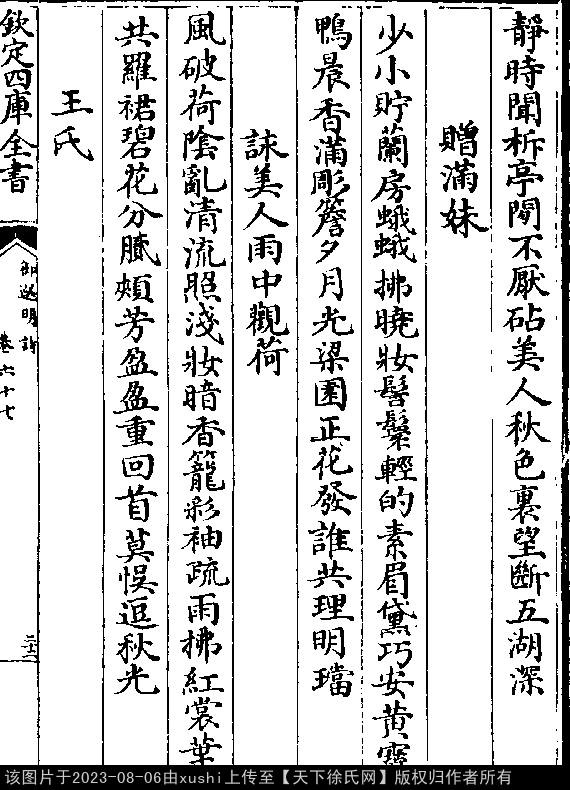 靜時聞柝亭閒不厭砧美人秋色裏望斷五湖深
贈滿妹
少小貯蘭房蛾蛾拂曉妝髻鬟輕的素眉黛巧安黄寳
鴨晨香滿彫簷夕月光梁園正花發誰共理明璫
詠美人雨中觀荷
風破荷陰亂清流照淺妝暗香籠彩袖疏雨拂紅裳葉
共羅裙碧花分膩頰芳盈盈重回首莫悞逗秋光
王氏
欽定四庫全書
御選明詩
卷六十七
二十三
该图片于2023-08-06由xushi上传至【天下徐氏网】版权归作者所有